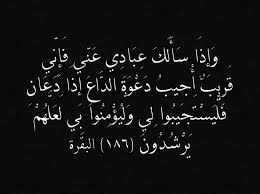 وَإِذَا سَأَلَكَ عِبَادِي عَنِّي فَإِنِّي
قَرِيبٌ أُجِيبُ دَعْوَةَ الدَّاعِ إِذَا دَعَانِ
فَلْيَسْتَجِيبُوا لِي وَلْيُؤْمِنُوا بِي لَعَلَّهُمْ
يَرْشُدُونَ (١٨٦) البقرة